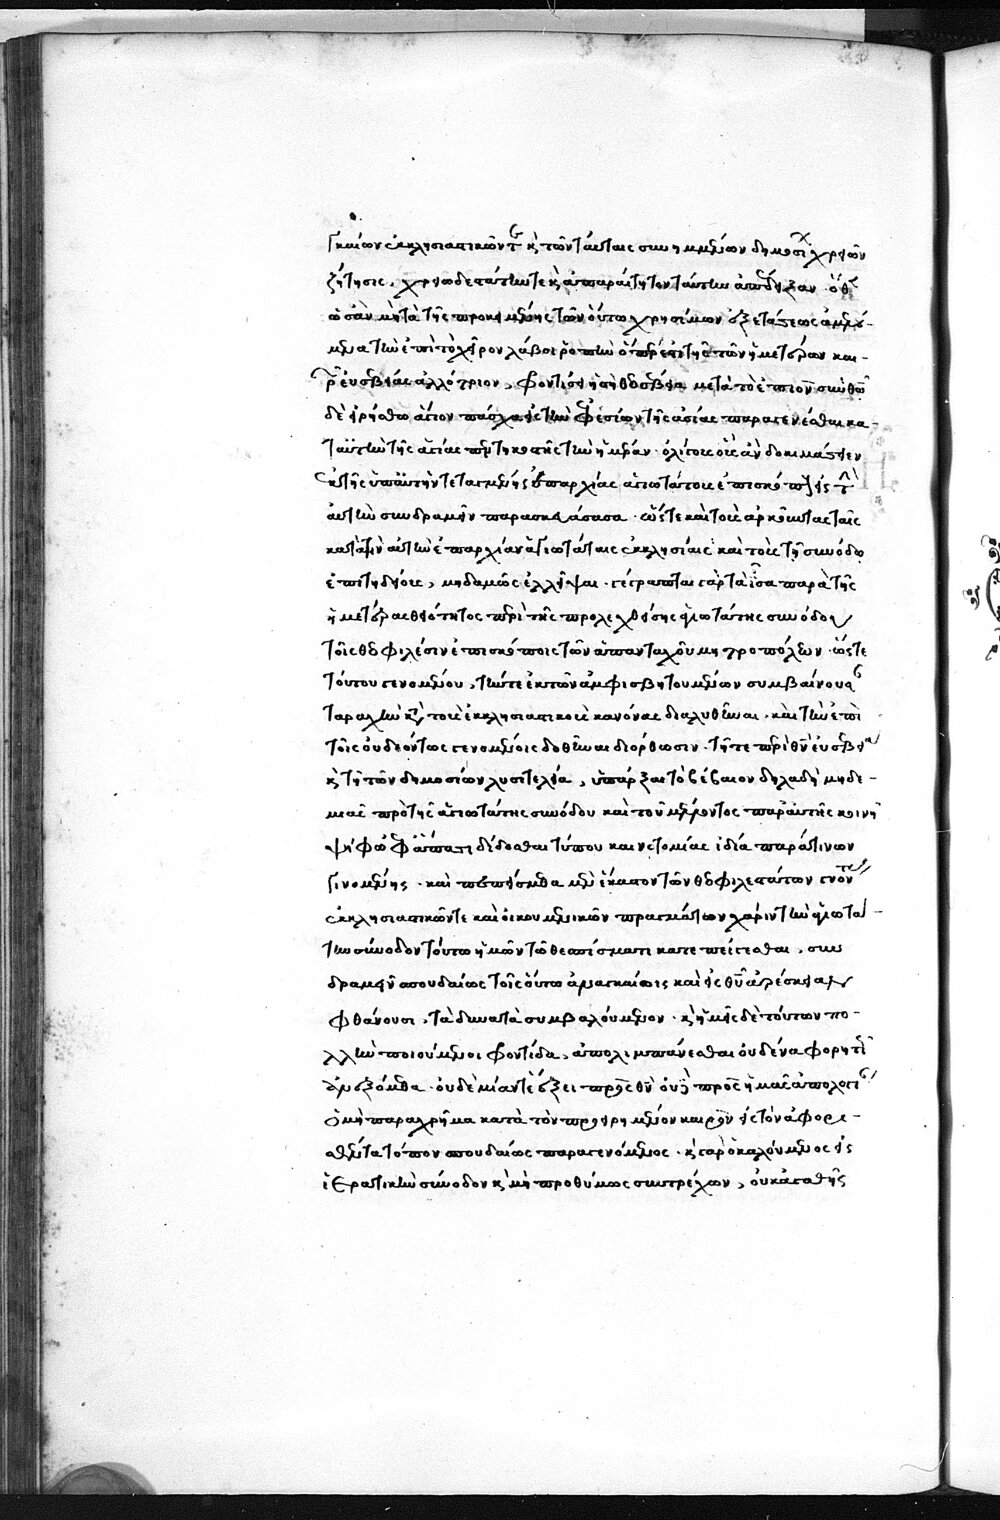 γκαίων ἐκκλησιαστικῶν τὲ κ(αὶ) τῶν ταύταις συνημμένων δημοσί(ων) χρειῶν
ζήτησις, χρειώδε στάτην τε κ(αὶ) ἀπαραίτητον ταύτην ἀπέδειξαν· ὅθεν
ὡσὰν μὴ τὰ τῆς προκειμένης τῶν οὕτω χρησίμων ἐξετάσεως ἀμελού-
μενα τὴν ἐπὶ τὸ χεῖρον λάβοι ῥοπὴν ὅπερ ἐστὶ τῆς τῶν ἡμετέρων και-
ρῶν εὐσεβείας ἀλλότριον, φροντίσει ἡ σὴ θεοσέβεια μετὰ τὸ ἐπιὸν σὺν θεῶ
δὲ εἰρήσθω ἅγιον πάσχα εἰς τὴν ἐφεσίων τῆς ἀσίας παραγενέσθαι κα-
τ' αὐτὴν τῆς ἁγίας πεντηκοστῆς τὴν ἡμέραν· ὀλίγους οὓς ἂν δοκιμάσειεν
ἐκ τῆς ὑπ' αὐτὴν τεταγμένης ἐπαρχίας ἁγιωτάτους ἐπισκόπους εἰς τὴν
αὐτὴν συνδραμεῖν παρασκευάσασα· ὥστε καὶ τοὺς ἀρκοῦντας ταῖς
κατὰ τὴν αὐτὴν ἐπαρχίαν ἁγιωτάταις ἐκκλησίαις καὶ τοὺς τῆ συνόδω
ἐπιτηδείους, μηδαμῶς ἐλλεῖψαι· γέγραπται γὰρ τὰ ἴσα παρὰ τῆς
ἡμετέρας θειότητος περὶ τῆς προλεχθείσης ἁγιωτάτης συνόδου
τοῖς θεοφιλέσιν ἐπισκόποις τῶν ἁπανταχοῦ μητροπόλεων· ὥστε
τούτου γενομένου, τήν τε ἐκ τῶν ἀμφισβητουμένων συμβαίνουσαν
ταραχὴν κατὰ τοὺς ἐκκλησιαστικοὺς κανόνας διαλυθῆναι· καὶ τὴν ἐπὶ
τοῖς οὐ δεόντως γενομένοις δοθῆναι διόρθωσιν· τῆ τε περὶ θεὸν εὐσεβεία
κ(αὶ) τῆ τῶν δημοσίων λυσιτελεία, ὑπάρξαι τὸ βέβαιον δηλαδὴ μηδε-
μιᾶς πρὸ τῆς ἁγιωτάτης συνόδου καὶ τοῦ μέλλοντος παρ' αὐτῆς κοινῆ
ψήφω ἐφ' ἅπασι δίδοσθαι τύπου καινοτομίας ἰδία παρά τινων
γινομένης· καὶ πεπείσμεθα μὲν ἕκαστον τῶν θεοφιλεστάτων
ἐκκλησιαστικῶν τε καὶ οἰκουμενικῶν πραγμάτων χάριν τὴν ἁγιωτά-
την σύνοδον τούτω ἡμῶν τῶ θεσπίσματι κατεπείγεσθαι, συν
δραμεῖν σπουδαίως τοῖς οὕτω ἀναγκαίοις καὶ εἰς θεοῦ ἀρέσκειαν
φθάνουσι, τὰ δυνατὰ συμβαλούμενον· κ(αὶ) ἡμεῖς δὲ τούτων πο-
λλὴν ποιούμενοι φροντίδα, ἀπολιμπάνεσθαι οὐδένα φορητῶς
ἀνεξόμεθα· οὐδεμίαν τὲ ἕξει πρὸς θεὸν οὐδὲ πρὸς ἡμᾶς ἀπολογίαν
ὁ μὴ παραχρῆμα κατὰ τὸν προειρημένον καιρὸν εἰς τὸν ἀφορι-
σθέντα τόπον σπουδαίως παραγενόμενος· κ(αὶ) γὰρ ὁ καλούμενος εἰς
ἱερατικὴν σύνοδον κ(αὶ) μὴ προθύμως συντρέχων, οὐκ ἀγαθῆς